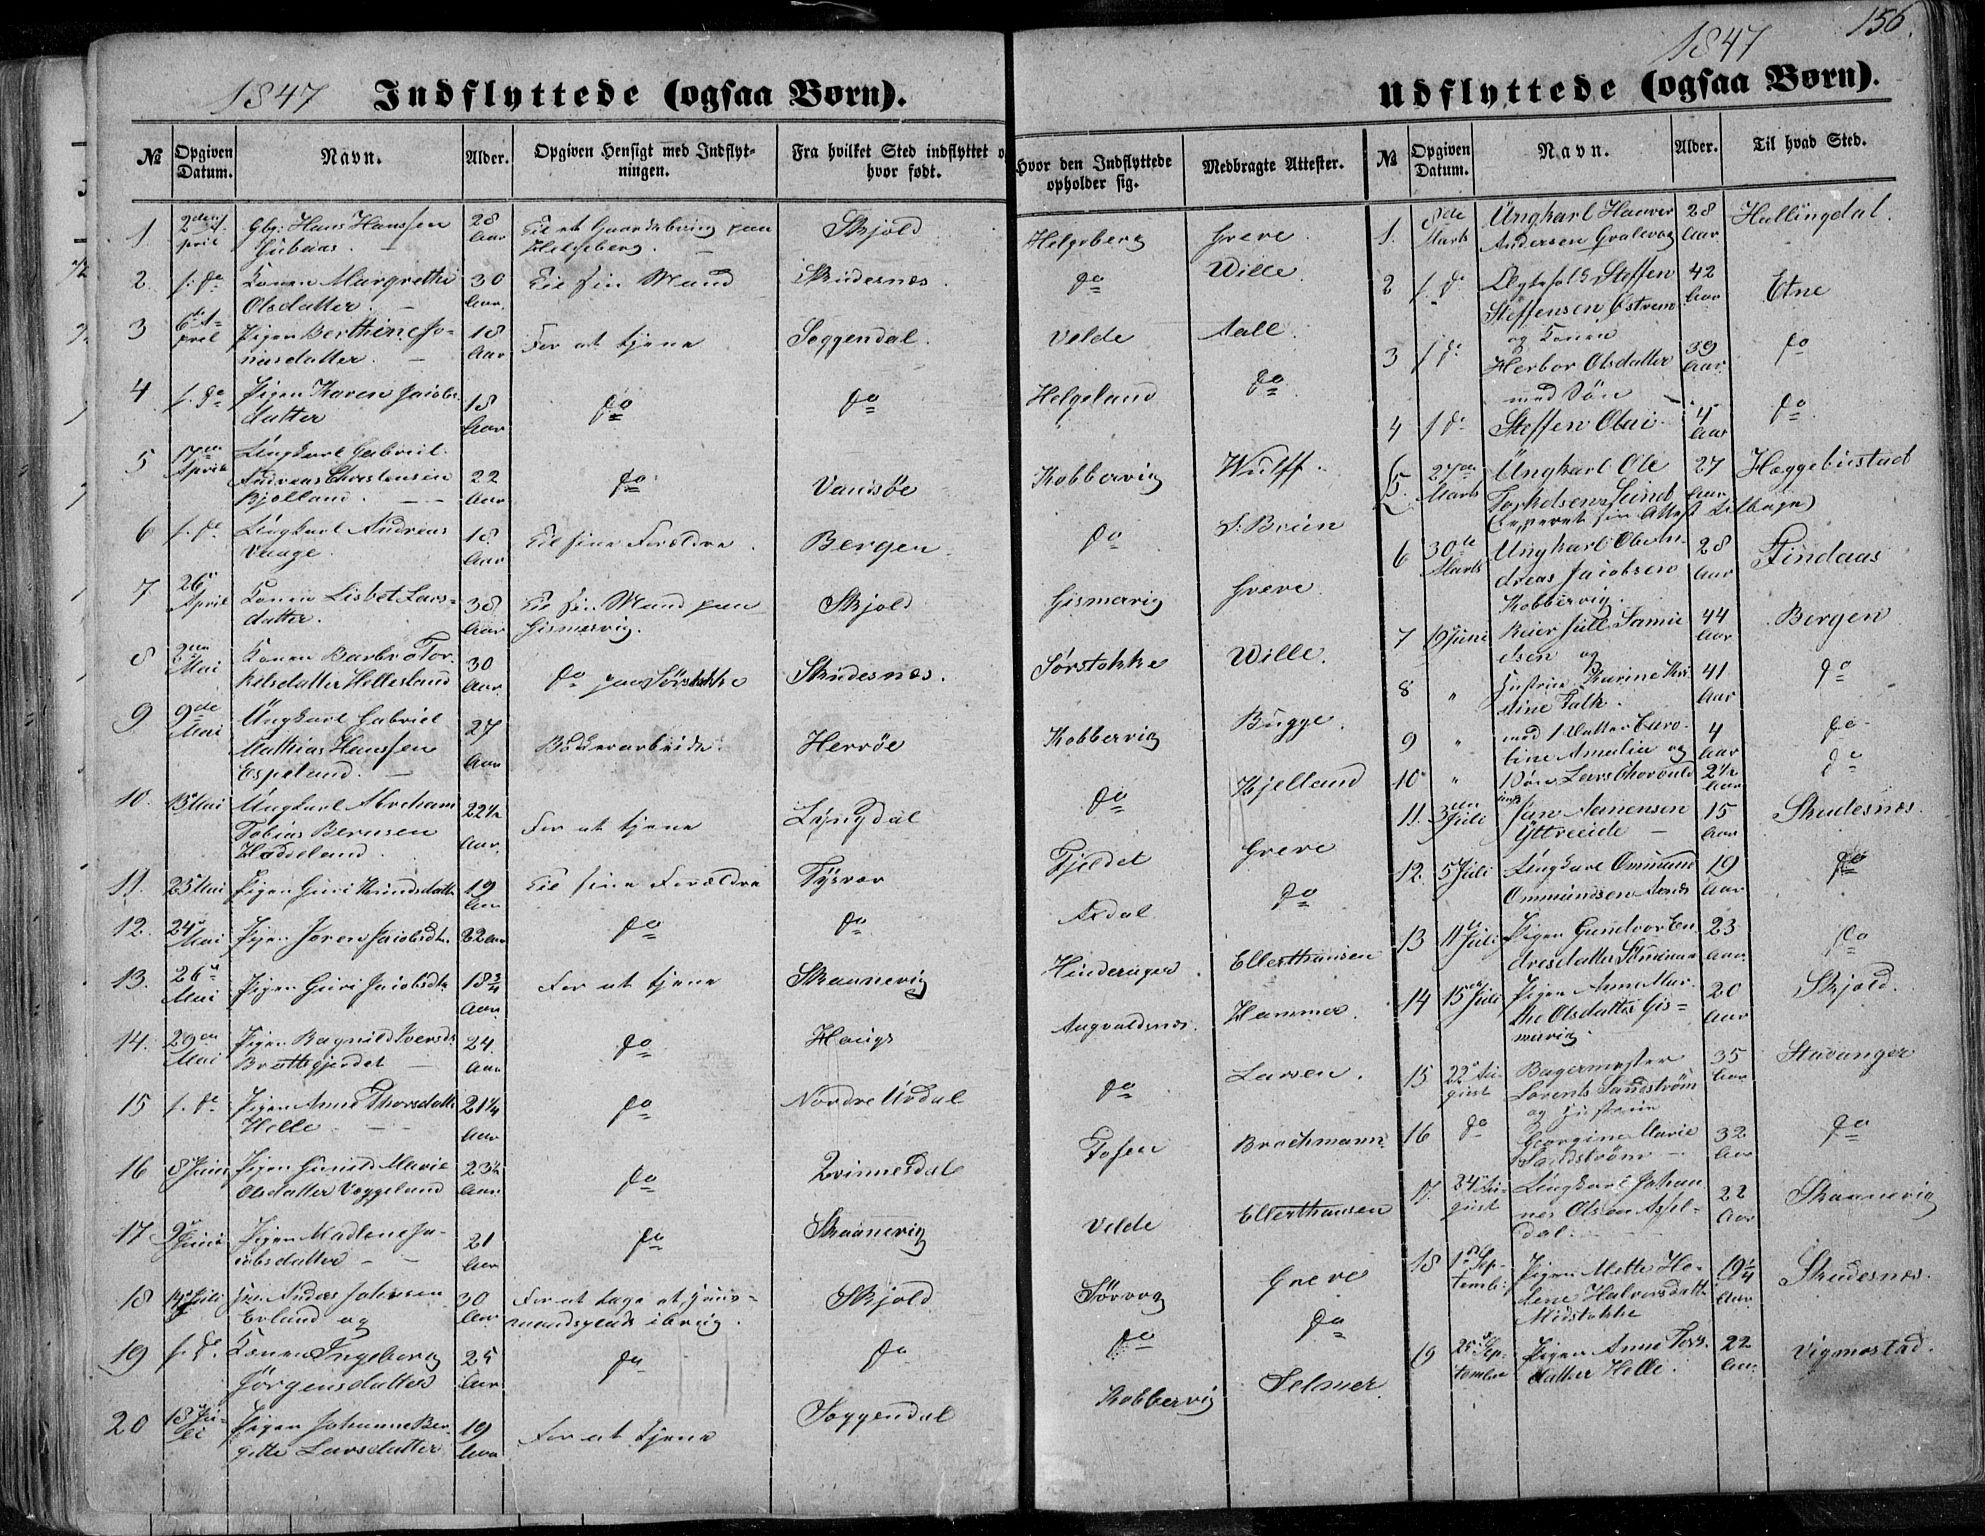 156.
1847 Indflyttede (ogsaa Børn).
№ Opgiven Datum. Navn. Alder. Opgiven Hensigt med Indflytningen. Fra hvilket Sted indflyttet hvor født. Hvor den Indflyttede opholder sig. Medbragte Attester.
1 2den April Hans Hanssen 28 Aar Til at Gaardsbrug paa Helgeberg. Skjold Helgeberg Greve
2. s: do Konen Margrethe Olsdatter 30 Aar. Til sin Mand Skudesnæs. do Wille
3 6te April Pigen Berthine Jonasdatter. 18 Aar For at tjene Soggendal. Velde Aall
4 s. do Pigen Karen Jacobsdatter 18 Aar do do Helgeland do
5 17en April Ungkarl Gabriel Andreas Christensen Bjelland. 22 Aar do Vansøe Kobbervig Wulff
6 s. do Ungkarl Andreas Vaage. 18. Aar Til sine Forældre. Bergen. do S: Brun
7 26 April Konen Lisbet Larsdatter. 38 Aar Til sin Mand paa Gismervig. Skjold Gismervig Greve
8 Mai Konen Barbro Torkelsdatter Hellesland 30 Aar. do paa Sørstokke Skudesnæs. Sørstokke Wille.
9 9de Mai Ungkarl Gabriel Mathias Hanssen Espeland. 27 Aar Bødkerarbeide. Herrøe Kobbervig Bugge.
10. 13 Mai Ungkarl Abraham Tobias Berntsen 22½ Aar. For at tjene Lyngdal do Kjelland
11. 23 Mai Pigen Guri 19 Aar Til sine Forældre Tysvær Fjeldet Greve
12. 24 Mai Pigen Joren Jacobsdtr. 22 Aar do do Axdal do
13. 26 Mai Pigen Guri Jacobsdtr 18¾ Aar. For at tjene Skaanevig Hinderager. Ellerthausen
14. 29en Mai Pigen Ragnild Iversdr Brattegjerdet 24. Aar do Haugs Augvaldsnæs. Hammer.
15 s. do Pigen Anne Thorsdatter Helle 21¼ Aar do Nordre Undal do Larsen.
16 8 Juni Pigen Gunild Marie Olsdatter Væggeland 23½ Aar. do Qvinnesdal Fosen Brochmann
17 9 Juni Pigen Madlene Jacobsdatter 21 Aar do Skaanevig Velde Ellerthausen
18 14 Juli Anders Johnsen Erland og 30 Aar. For at tage et Huusmandsplads i brug. Skjold Sørvog Greve
19 s. do Konen Ingeborg Jørgensdatter 25 Aar. do do do do
20 18 Juli Pigen Johanne Bergitte Larsdatter 19 Aar For at tjene Soggendal Kobbervig Selmer.
1847 Udflyttede (ogsaa Børn).
№ Opgiven Datum. Navn. Alder. Til hvad Sted.
1. 8de Marts Ungkarl Haaver Andersen Gralevog 28 Aar Hallingdal.
2 s. do Steffen Steffensen Østrem og Konen 42 Aar Etne
3 s do Herbor Olsdatter med Søn 39 Aar. do
4 s do Steffen Olai 4 Aar do
5. 27de Marts Ungkarl Ole Torkelsen Sund 27 Aar Heggebustad
(leveret sin Attest tilbage)
6 30te Marts Ungkarl Ole Andreas Jacobsen Kobbervig. 28 Aar Findaas
7 19 Juni Reier Juell Samuelsen og 44 Aar Bergen
8 " Hustrue Karine Kristine Falk. 41 Aar do
9 " med 1 Datter Caroline Amalie og 4 Aar do
10 " 1 Søn Lars Thorvald 2½ Aar do
11. 3den Juli Jan Aanensen Yttreeide 15 Aar Skudesnæs.
12. 5 Juli Ungkarl Ommund Ommundsen 19 Aar do
13 11 Juli Pigen Gundvor Endresdatter 23 Aar do
14 15 Juli Pigen Anne Marthe Olsdatter Gismervig 20 Aar Skjold.
15 22 August Bagermester Lorents Sandstrøm og Hustrue 35 Aar Stavanger
16 do Georgine Marie Sandstrøm 32 Aar do
17. 24 August Ungkarl Johannes Olsen Asseldal. 22 Aar Skaanevig
18 1 September Pigen Mette Helene Halvorsdatter Midstokke 19¼ Aar. Skudesnæs.
19 25 September Pigen Anne Torsdatter Helle. 22 Aar Vigmostad.